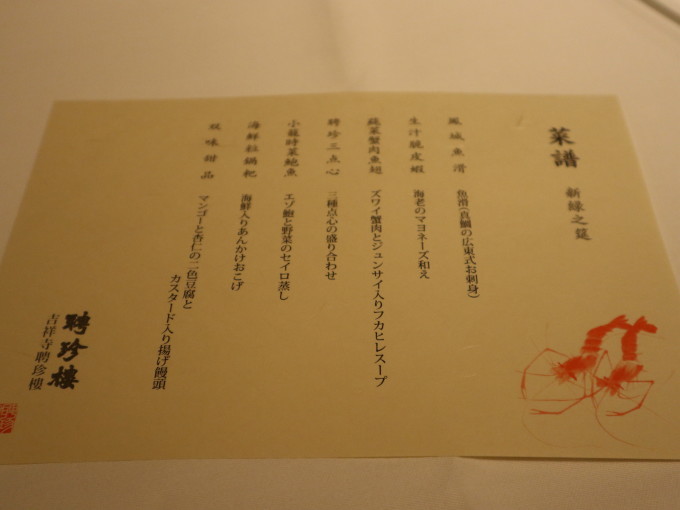 菜譜　新緑之筵
鳳城魚滑　魚滑(真鯛の広東式お刺身)
生汁脆皮蝦　海老のマヨネーズ和え
蒓菜蟹肉魚翅　ズワイ蟹肉とジュンサイ入りフカヒレスープ
聘珍三点心　三種点心の盛り合わせ
小籠時菜鮑魚　エゾ鮑と野菜のセイロ蒸し
海鮮粒鍋粑　海鮮入りあんかけおこげ
双味甜品　マンゴーと杏仁の二色豆腐と
カスタード入り揚げ饅頭
聘珍樓
吉祥寺聘珍樓